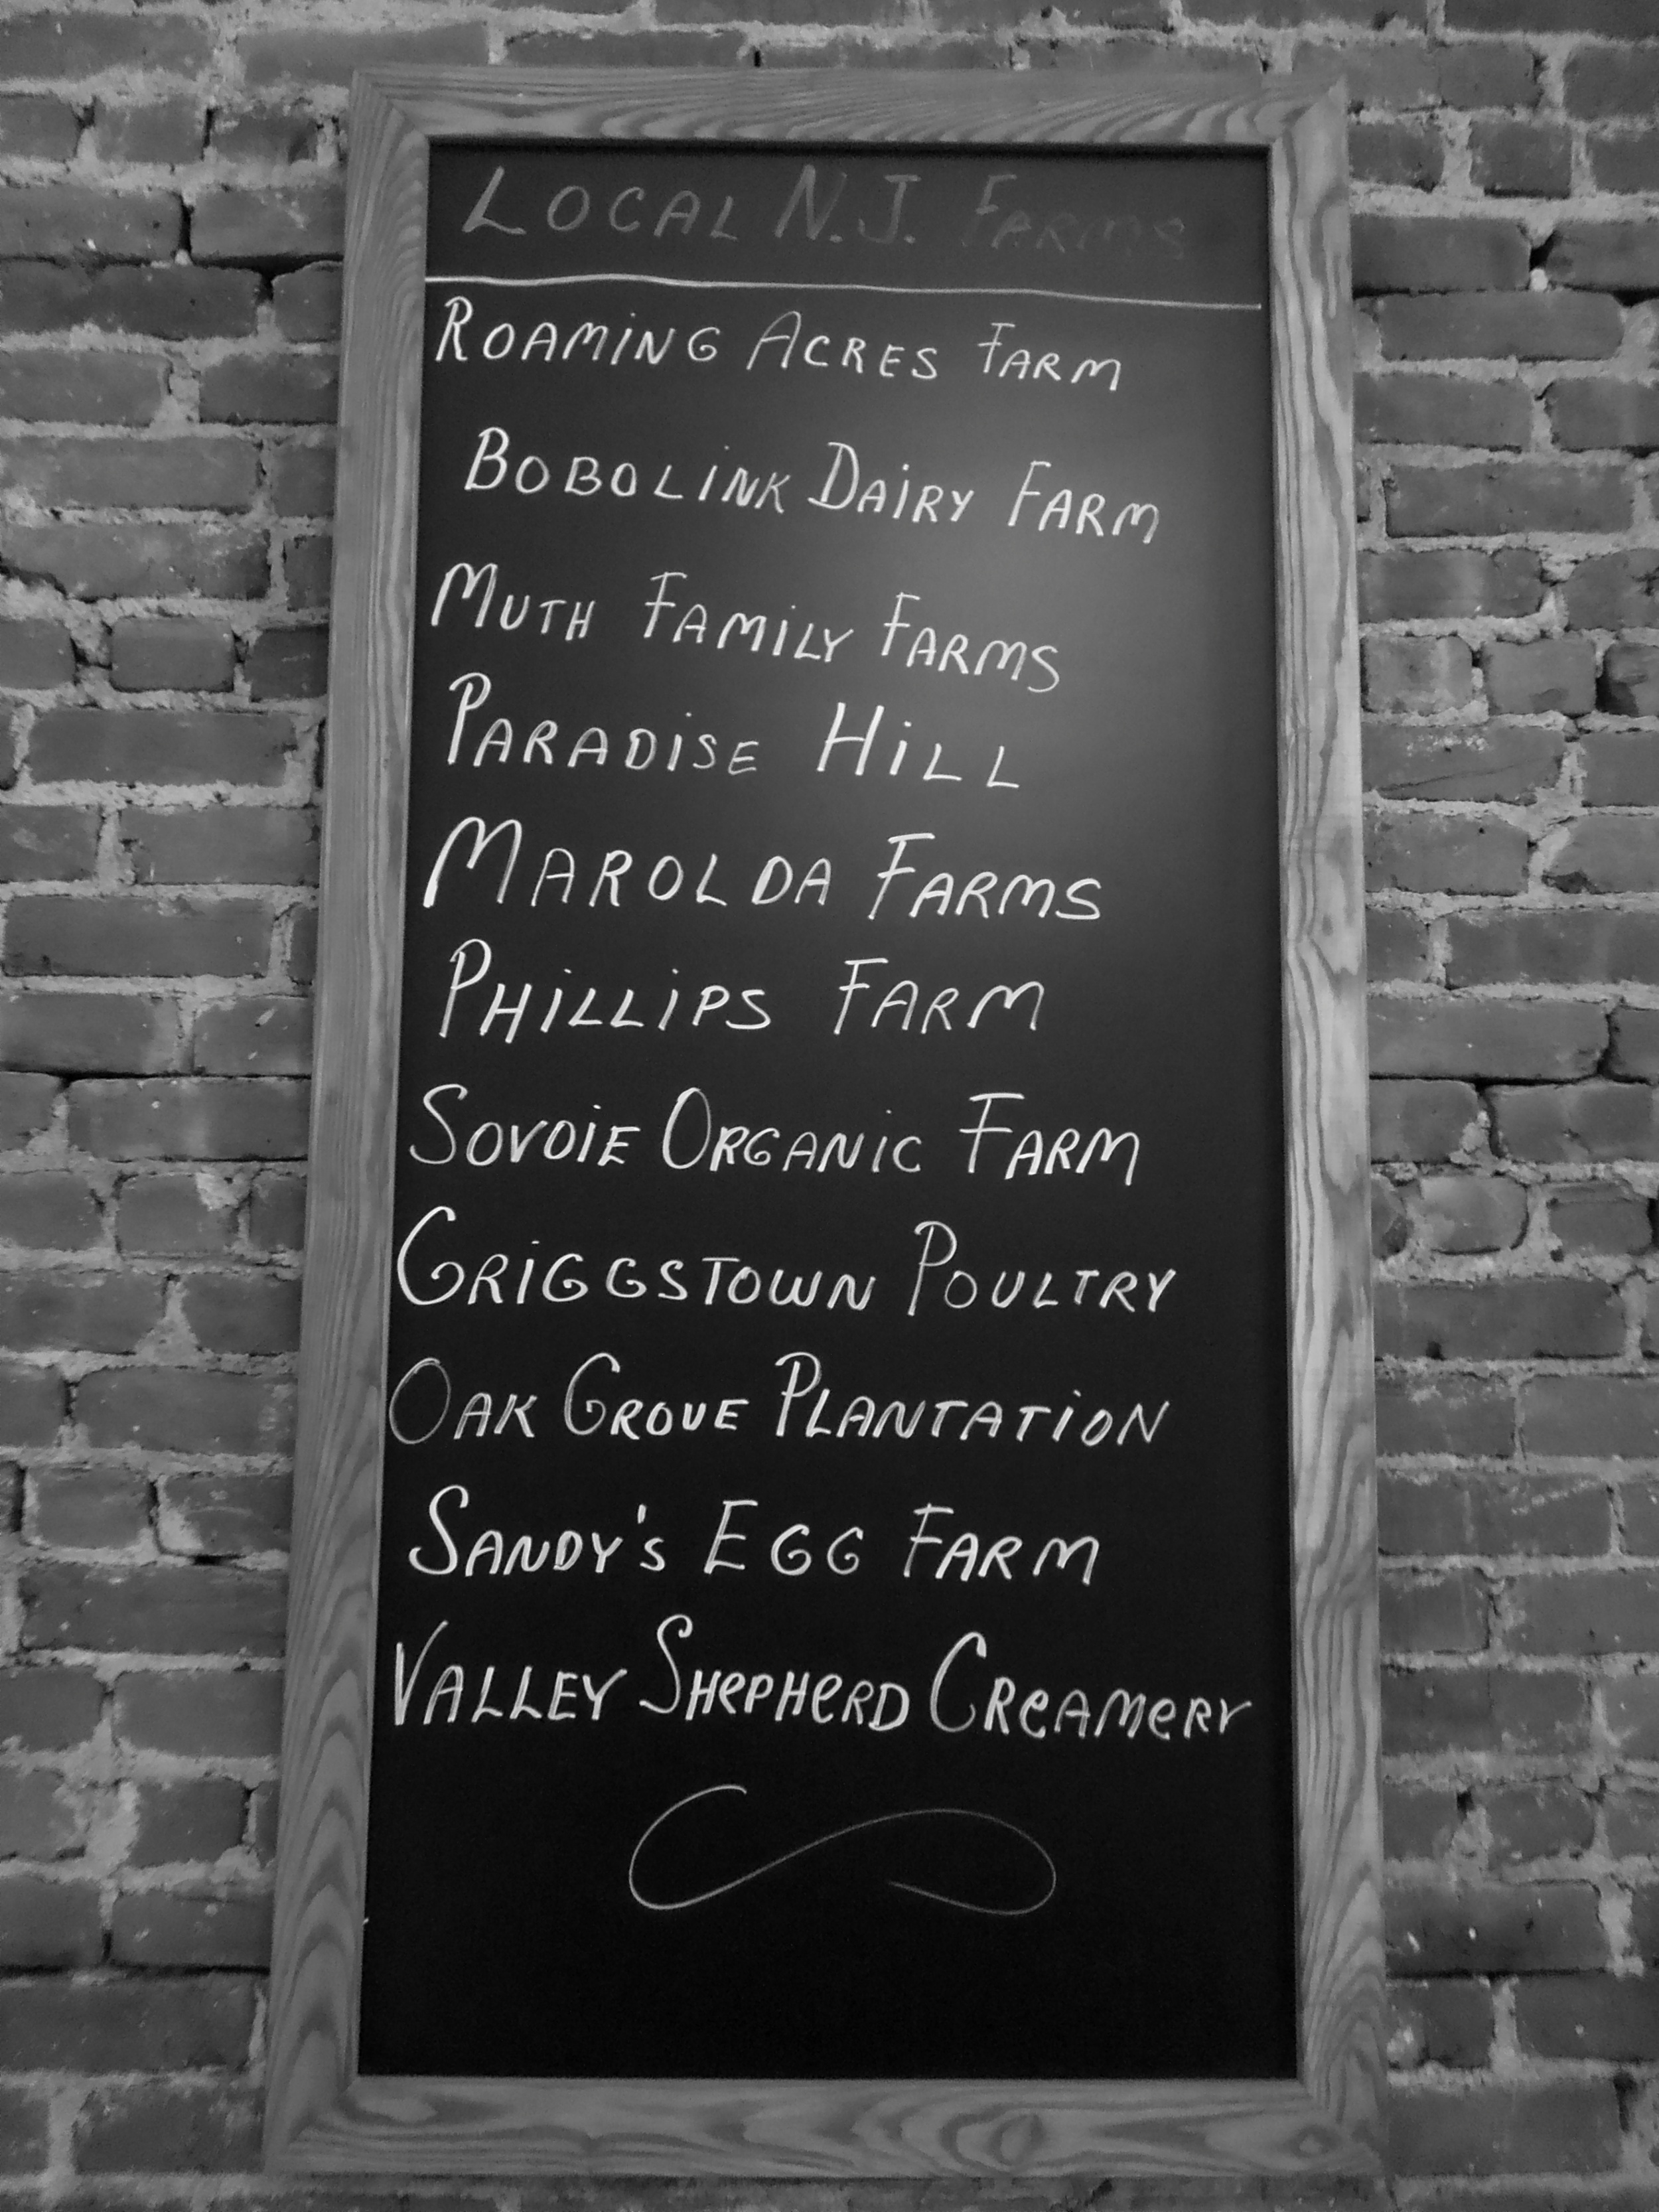 LOCAL N.J. FARMS
ROAMING ACRES FARM
BOBOLINK DAIRY FARM
MUTH FAMILY FARMS
PARADISE HILL
MAROLDA FARMS
PHILLIPS FARM
SOVOIE ORGANIC FARM
GRIGGSTOWN POULTRY
OAK GROVE PLANTATION
SANDY'S EGG FARM
VALLEY SHePHeRD CReAMeRY